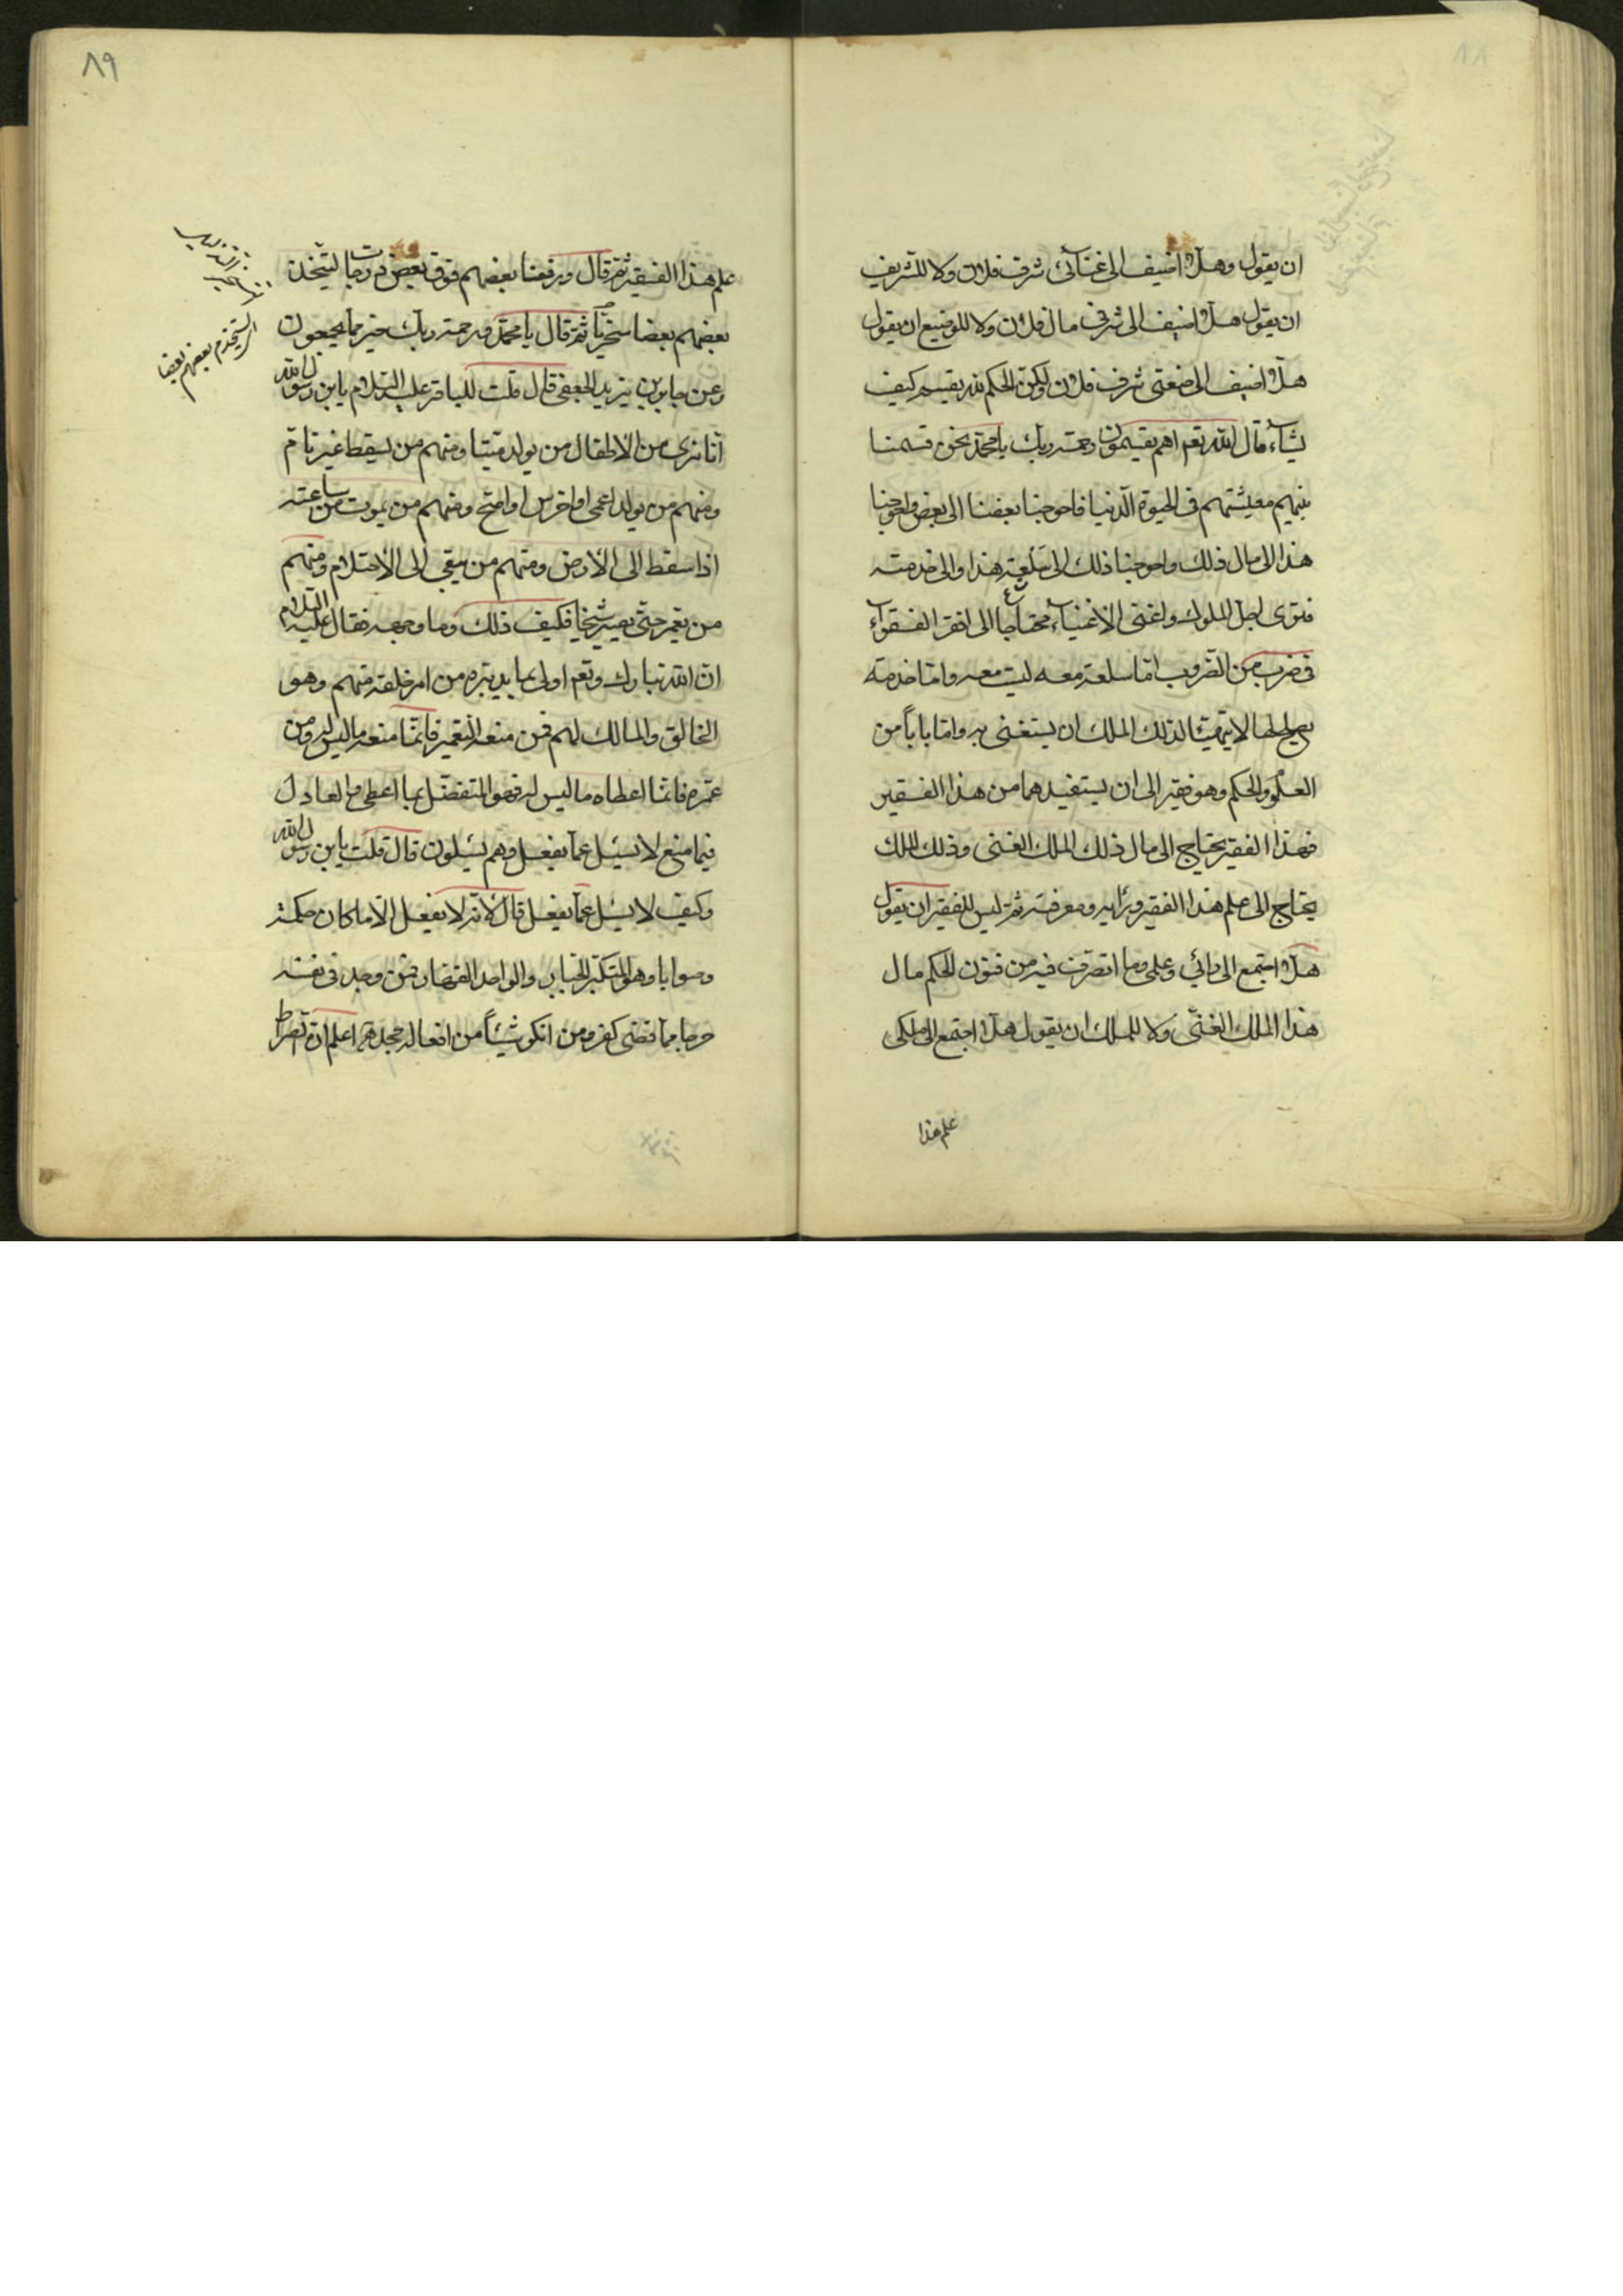 ان يقول وهلّا اضيف الى غنائي شرف فلان ولا للشريف
ان يقول هلّا اضيف الى شرفي مال فلان ولا للوضيع ان يقول
هلّا اضيف الى ضعتي شرف فلان ولكن الحكم لله يقسم كيف
يشاء، قال الله تعم اهم يقسمون رحمة ربك يا محمد نحن قسمنا
بينهم معيشتهم في الحيوة الدنيا فاحوجنا بعضنا الى بعض واحوجنا
هذا الى مال ذلك واحوجنا ذلك الى سلعة هذا والى خدمته
فترى اجل الملوك واغنى الاغنياء محتاجا الى افقر الفقراء
في ضرب من الضروب امّا سلعة معه ليست معه وامّا خدمة
يصلح لها لا يتهيّا لذلك الملك ان يستغنى به وامّا باباً من
العلوم والحكم وهو فقير الى ان يستفيدهما من هذا الفقير
فهذا الفقير يحتاج الى مال ذلك الملك الغنى وذلك الملك
يحتاج الى علم هذا الفقير ورائيه ومعرفته ثمّ ليس للفقير ان يقول
هلّا اجتمع الى رائي وعلمي وما اتصرف فيه من فنون الحكم مال
هذا الملك الغنيّ ولا للملك ان يقول هلّا اجتمع الى ملكي
علم هذا
٨٩
علم هذا الفقير ثمّ قال ورفعنا بعضهم فوق بعض درجات ليتّخذ
بعضهم بعضا سخريّا ثمّ قال يا محمد ورحمة ربك خير مما يجمعون
وعن جابر بن يزيد الجعفي قال قلت للباقر عليه السلام يابن رسول الله
انّا نرى من الاطفال من يولد ميّتا ومنهم من يسقط غير تامّ
ومنهم من يولد اعمى او اخرس او اصمّ ومنهم من يموت من ساعته
اذا سقط الى الارض ومنهم من يبقى الى الاحتلام ومنهم
من يعمر حتّى يصير شيخا فكيف ذلك وما وجهه فقال عليه السلام
انّ الله تبارك وتعم اولى بما يدبّره من امر خلقه منهم وهو
الخالق والمالك لهم فمن منعه التعمير فانّما منعه ما ليس له ومن
عمّره فانّما اعطاه ما ليس له فهو المتفضّل بما اعطى والعادل
فيما منع لا يسئل عمّا يفعل وهم يسئلون قال قلت يابن رسول الله
وكيف لا يسئل عمّا يفعل قال لانّه لا يفعل الّا ما كان حكمة
وصوابا وهو المتكبّر الجبّار والواحد القهّار فمن وجد في نفسه
حرجا ممّا قضى كفر ومن انكر شيئاً من افعاله جحد
ليستخدم بعضهم بعضا